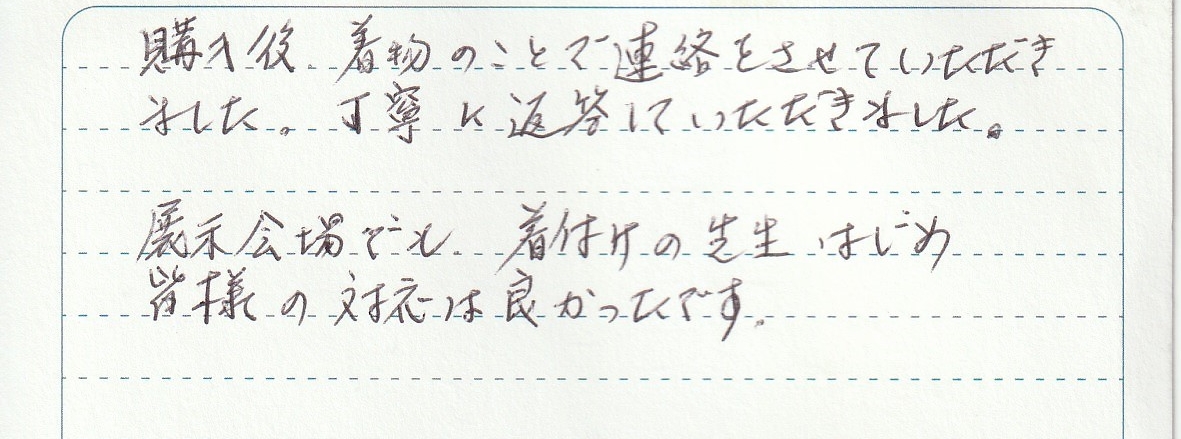 購入後、着物のことで連絡をさせていただき
ました。丁寧に返答していただきました。
展示会場でも、着付けの先生はじめ
皆様の対応は良かったです。